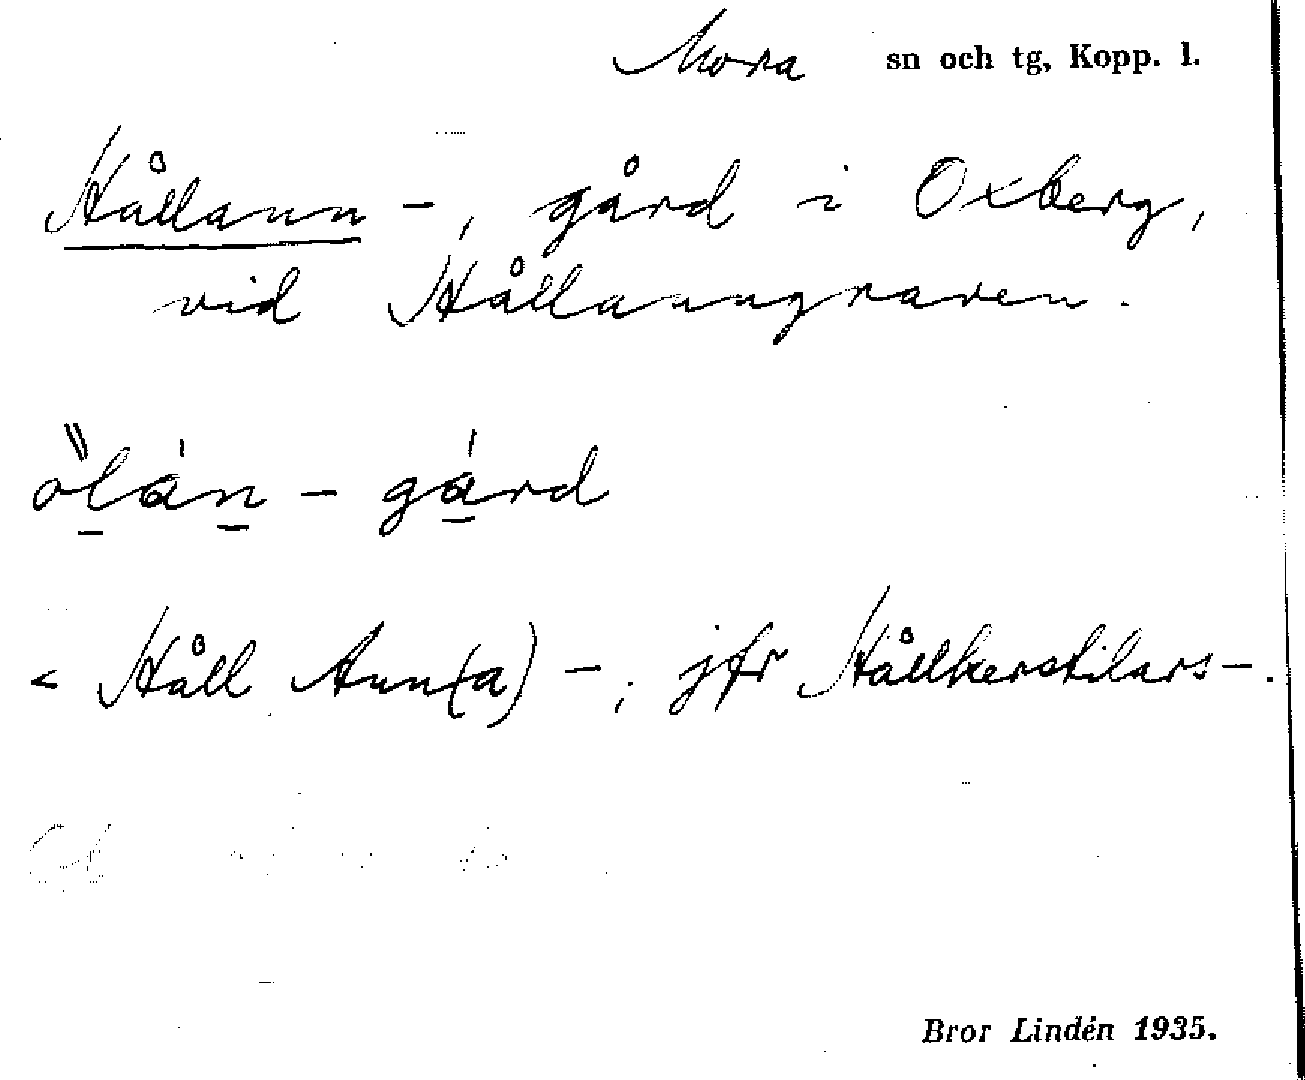 Mora sn och tg, Kopp. l.
Hållann -, gård i Oxberg,
vid Hållanngraven.
ö̀lán - gárd
< Håll Ann(a) -; jfr Hållkerstilars-.
Bror Lindén 1935.